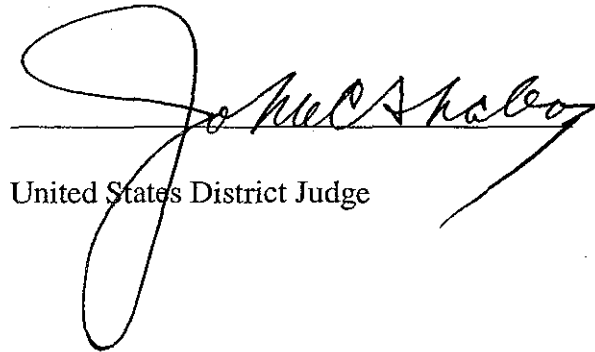 John C Shabaz
United States District Judge